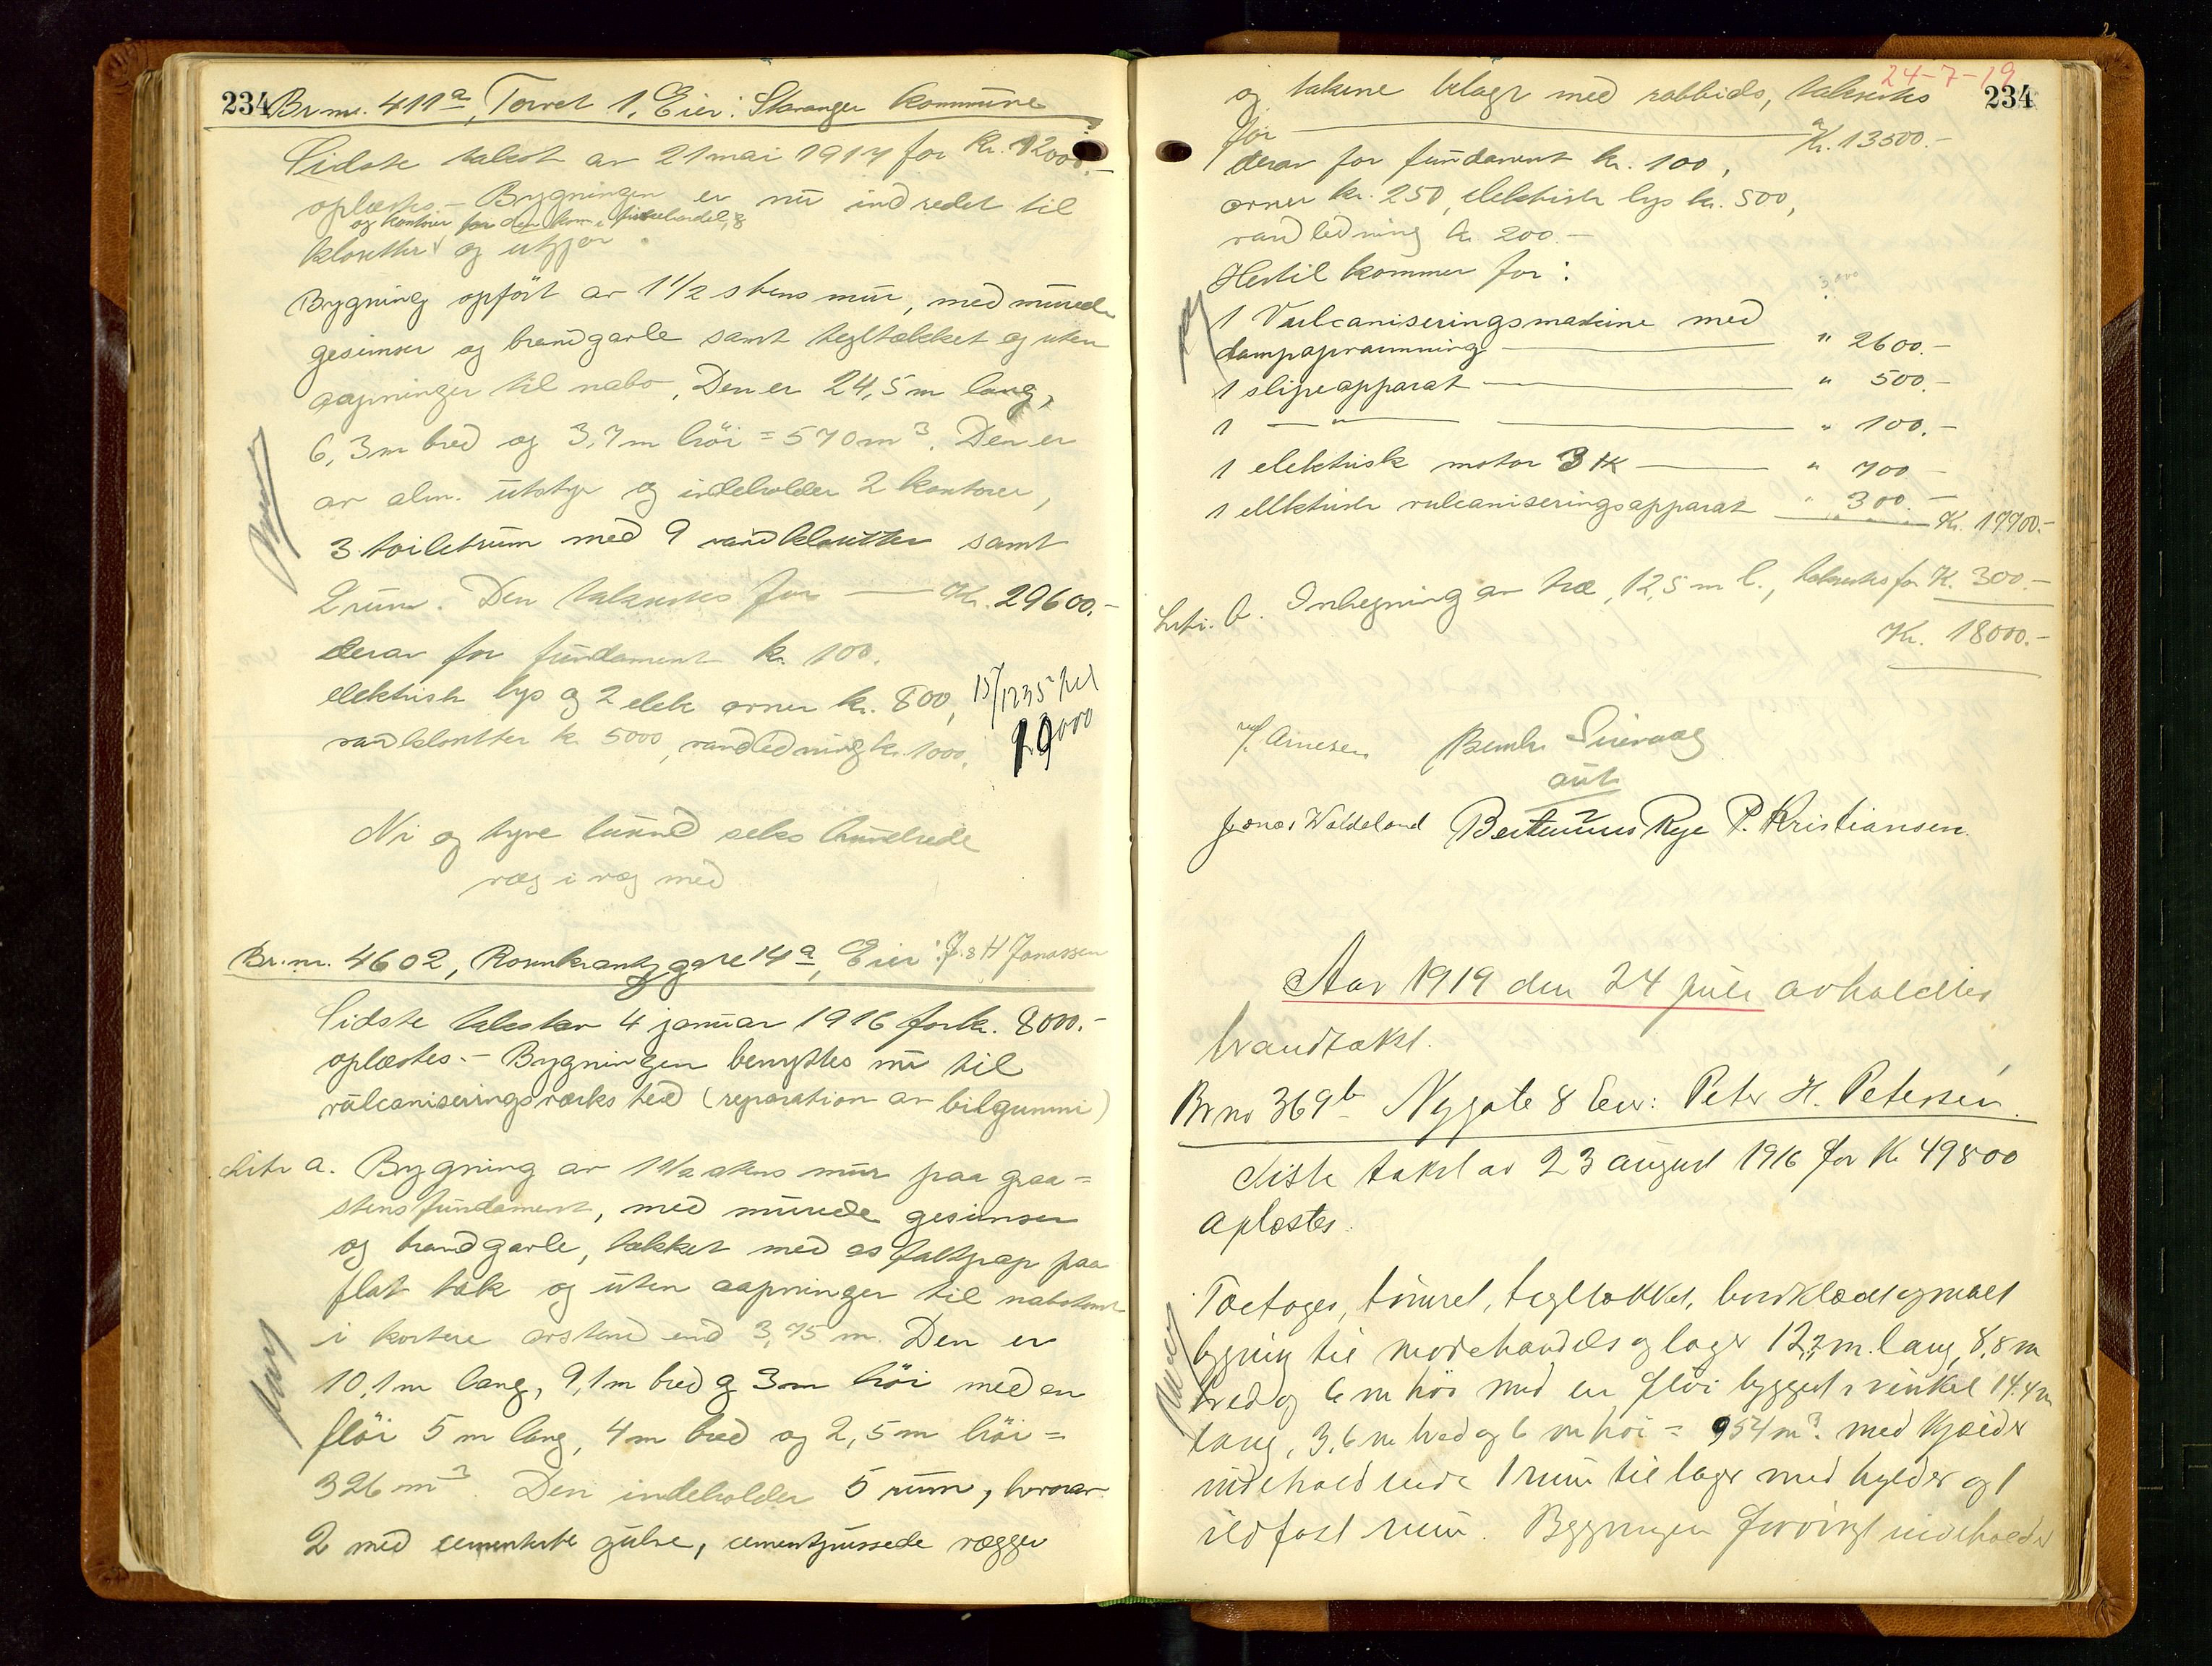 234 Br.nr. 411a, Torvet 1, Eier: Stavanger kommune
Sidste takst av 21 mai 1917 for Kr. 12000.-
oplæstes - Bygningen er nu indredet til
og kontor for den kom.
klosetter og utgjør
Bygning opført av 1 1/2 stens mur, med murede
gesimser og brandgavle samt tegltækket og uten
aapninger til nabo. Den er 24,5 m lang,
6,3 m bred og 3,7 m høi = 570 m³. Den er
av alm. utstyr og indeholder 2 kontorer,
3 toiletrum med 9 vandklosetter samt
2 rum. Den takseres for — Kr. 29600.-
derav for fundament kr. 100.
elektrisk lys og 2 elek ovner kr. 800,
vandklosetter kr 5000, vandledning kr. 1000.
Ni og tyve tusind seks hundrede
væg i væg med
Br.nr. 4602, Rosenkrantzgate 14a, Eier: J. & H Jonassen
Sidste takst av 4 januar 1916 for kr. 8000.-
oplæstes. - Bygningen benyttes nu til
vulcaniseringsverksted (reparation av bilgummi)
Litr a. Bygning av 1 1/2 stens mur paa graa=
stensfundament, med murede gesimser
og brandgavle, tækket med asfaltpap paa
flat tak og uten aapninger til nabotomt
i kortere avstand end 3,75 m. Den er
10,1 m lang, 9,1 m bred og 3 m høi med en
fløi 5 m lang, 4 m bred og 2,5 m høi =
326 m³. Den indeholder 5 rum, hvorav
2 med cementerte gulve, cementpussede vægger
24-7-19
234
og takene belagt med rabbids, takseres
for — Kr. 13500.-
derav for fundament kr. 100,
ovner kr. 250, elektrisk lys kr. 500,
vandledning kr. 200.-
Hertil kommer for:
1 Vulcaniseringsmaskine med
dampopvarmning — " 2600.-
1 slipeapparat — " 500.-
1 — " — " 100.-
1 elektrisk motor 3 HK — " 700.-
1 elektrisk vulcaniseringsapparat " 300.- Kr. 17700.-
Litr. b. Inhegning av træ, 12,5 m l., takseres for K. 300.-
Kr. 18000.-
Arnesen Bernh.
aut
Jonas Waldeland Bertinius Rye P. Kristiansen.
Aar 1919 den 24 juli avholdtes
brandtakst.
Br no 369b Nygate 8 Eier: Peter H. Petersen.
Siste takst av 23 august 1916 for Kr 49800
oplæstes.
Toetages, tømret, tegltækket, bordklædt og malt
bygning til motehandels og lager 12,2 m. lang, 8,8 m
bred og 6 m høi med en fløi bygget i vinkel 14.4 m
lang, 3,6 m bred og 6 m høi = 954 m³. med kjælder
indeholdende 1 rum til lager med hylder og 1
ildfast rum. Bygningen forøvrigt indeholder